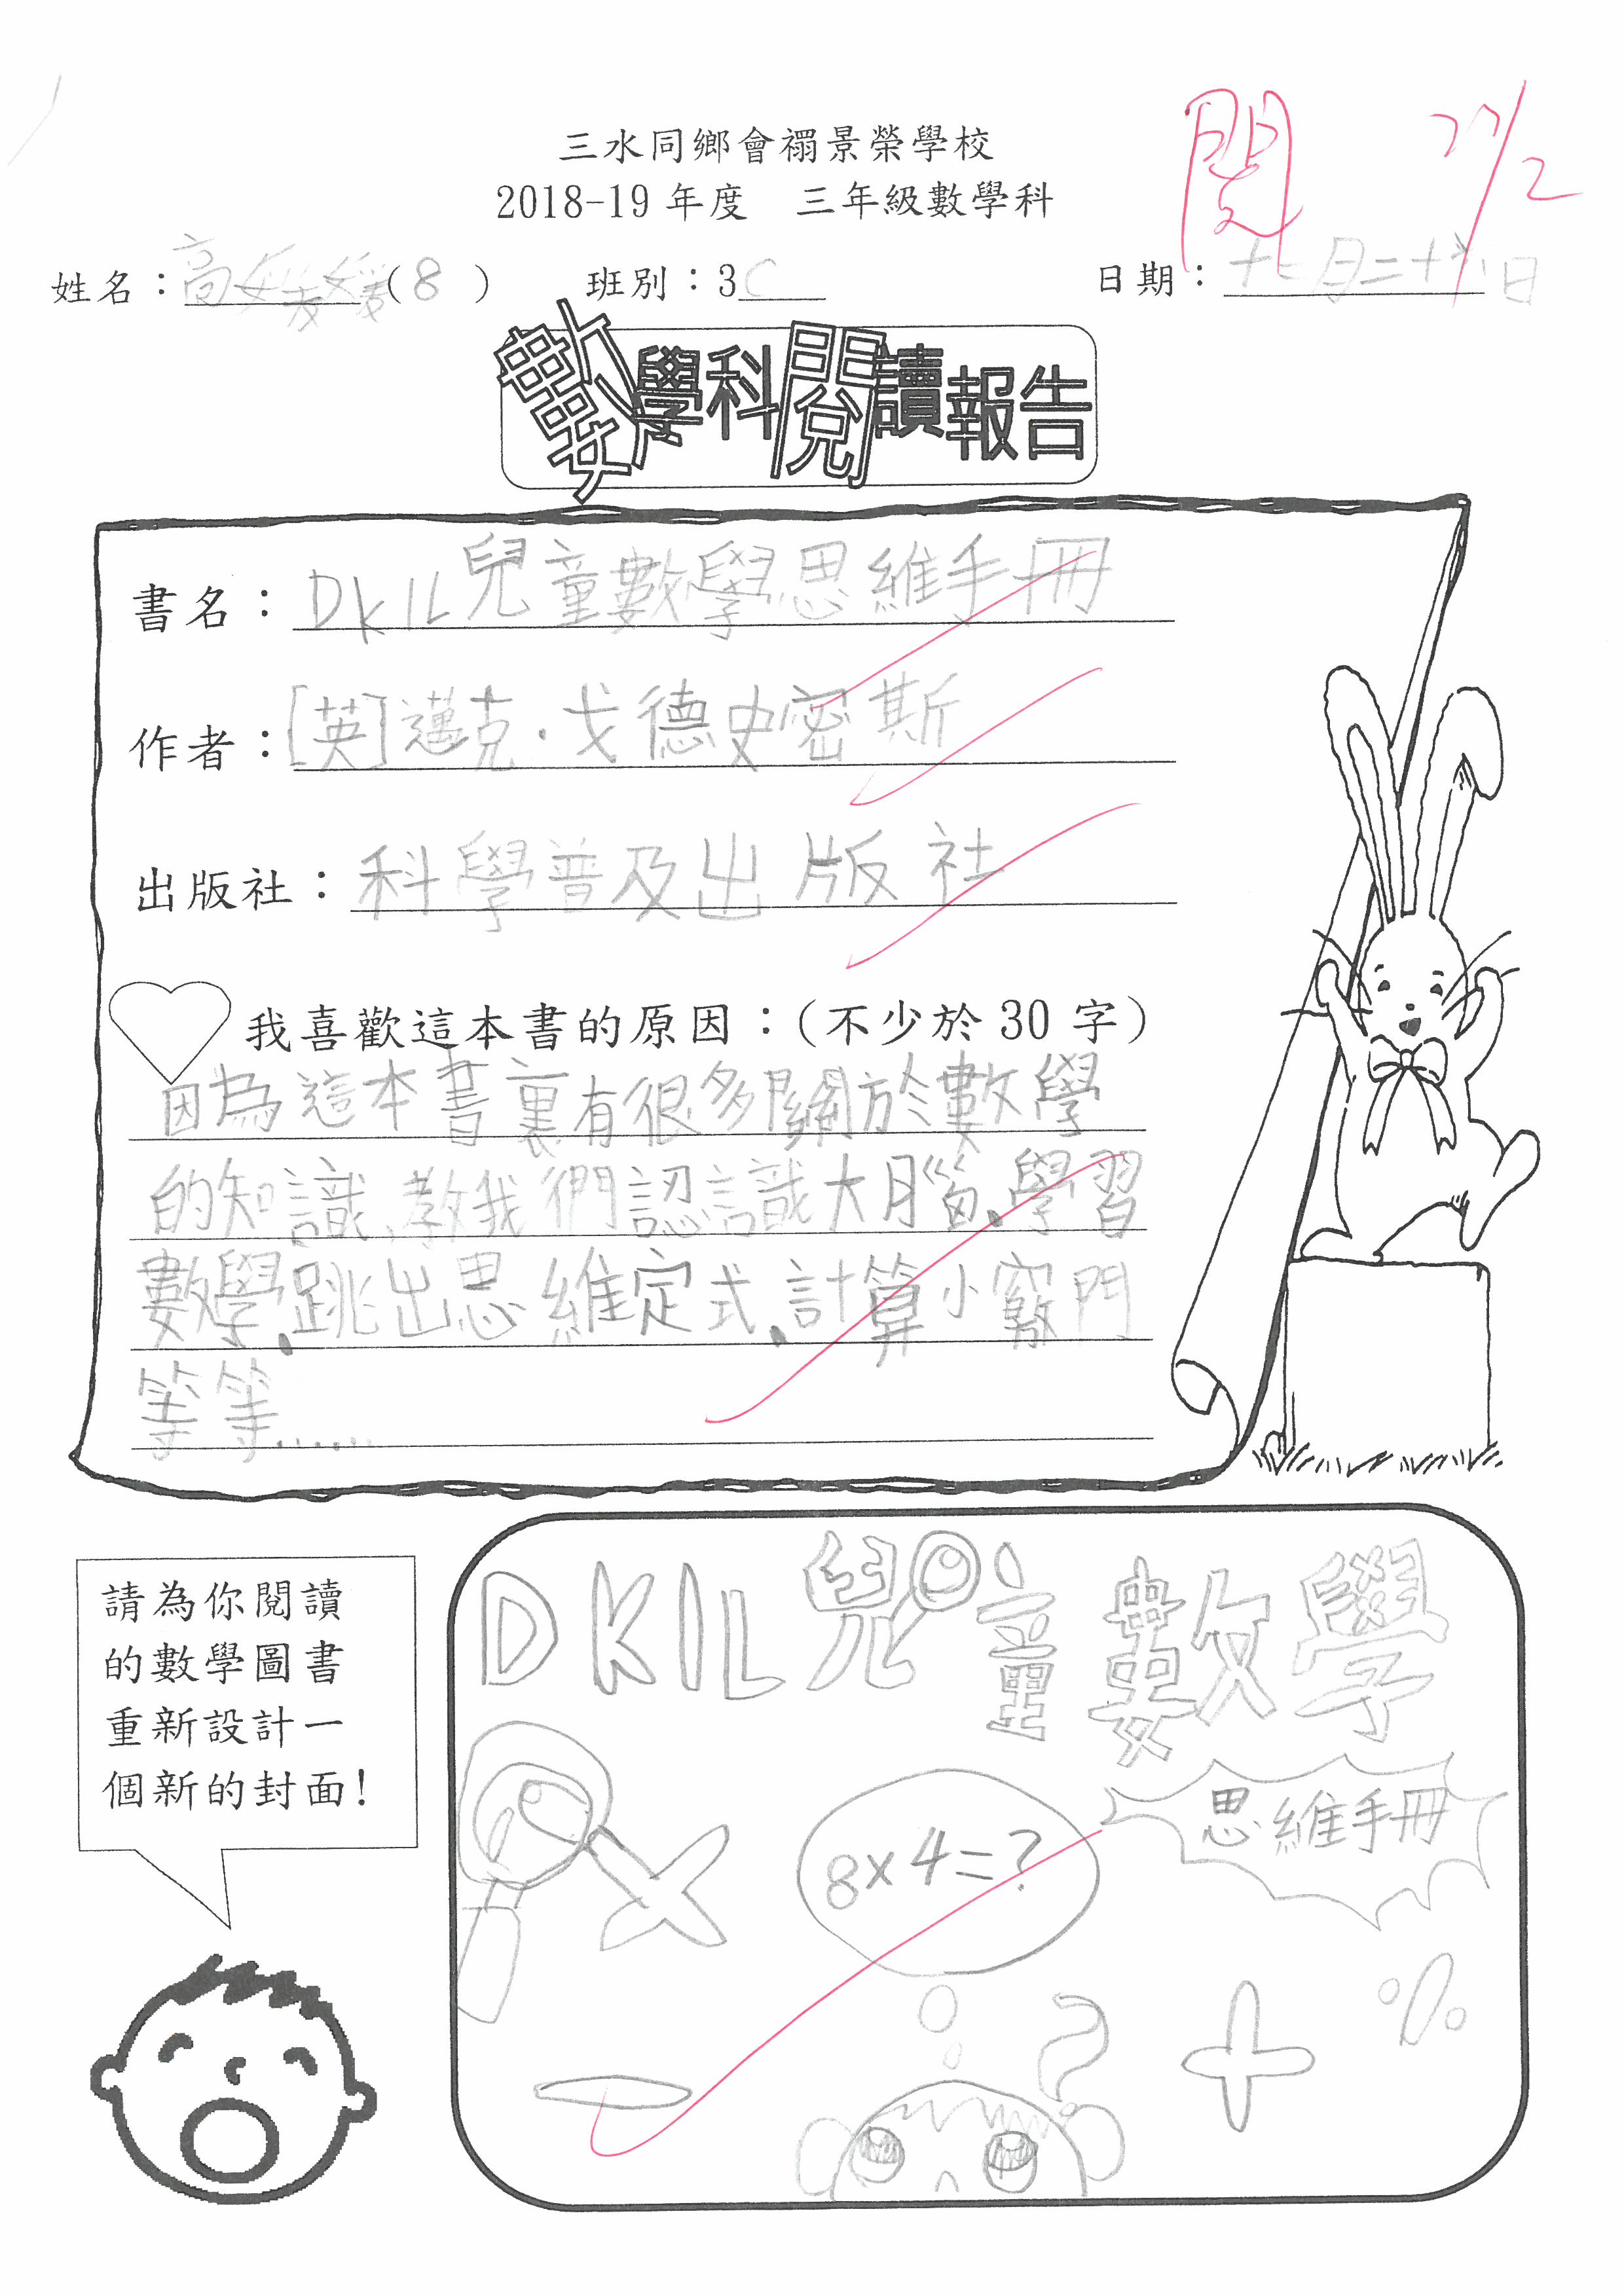 三水同鄉會禤景榮學校
2018-19 年度 三年級數學科
閱
姓名：高媛媛（8） 班別：3C 日期：十二月二十六日
數學科閱讀報告
書名：DKIL兒童數學思維手冊
作者：[英]邁克·戈德史密斯
出版社：科學普及出版社
我喜歡這本書的原因：(不少於 30 字)
因為這本書裏有很多關於數學
的知識，教我們認識大腦、學習
數學、跳出思維定式、計算小竅門
等等……
請為你閱讀
的數學圖書
重新設計一
個新的封面！
DKIL兒童數學
思維手冊
8×4=?